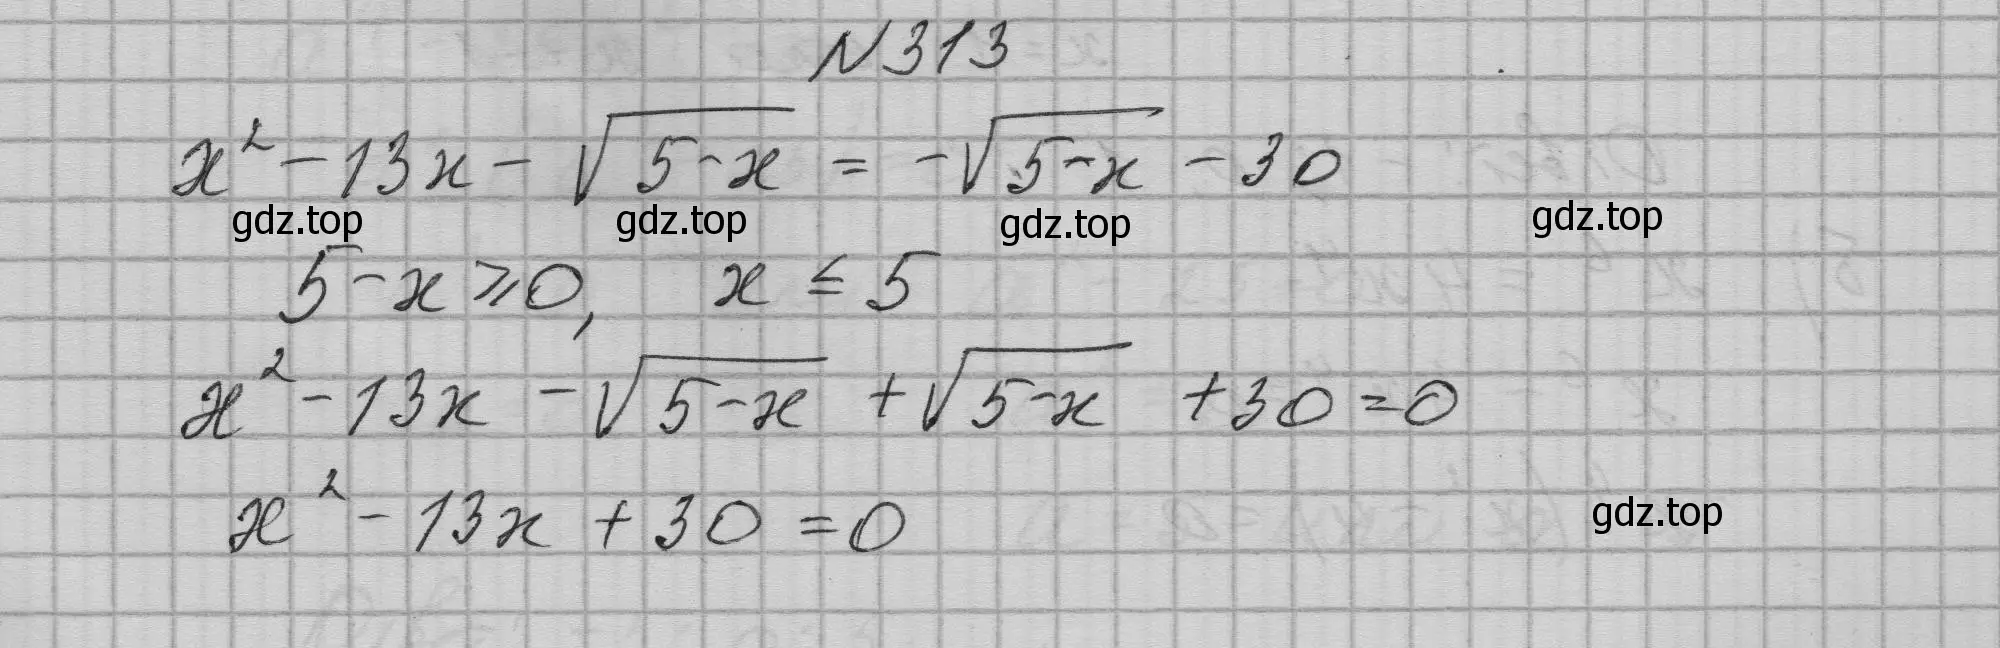 N313
x² - 13x - √(5-x) = -√(5-x) - 30
gdz.top gdz.top gdz.top gdz.top
5-x ≥ 0, x ≤ 5
x² - 13x - √(5-x) + √(5-x) + 30 = 0
x² - 13x + 30 = 0
gdz.top